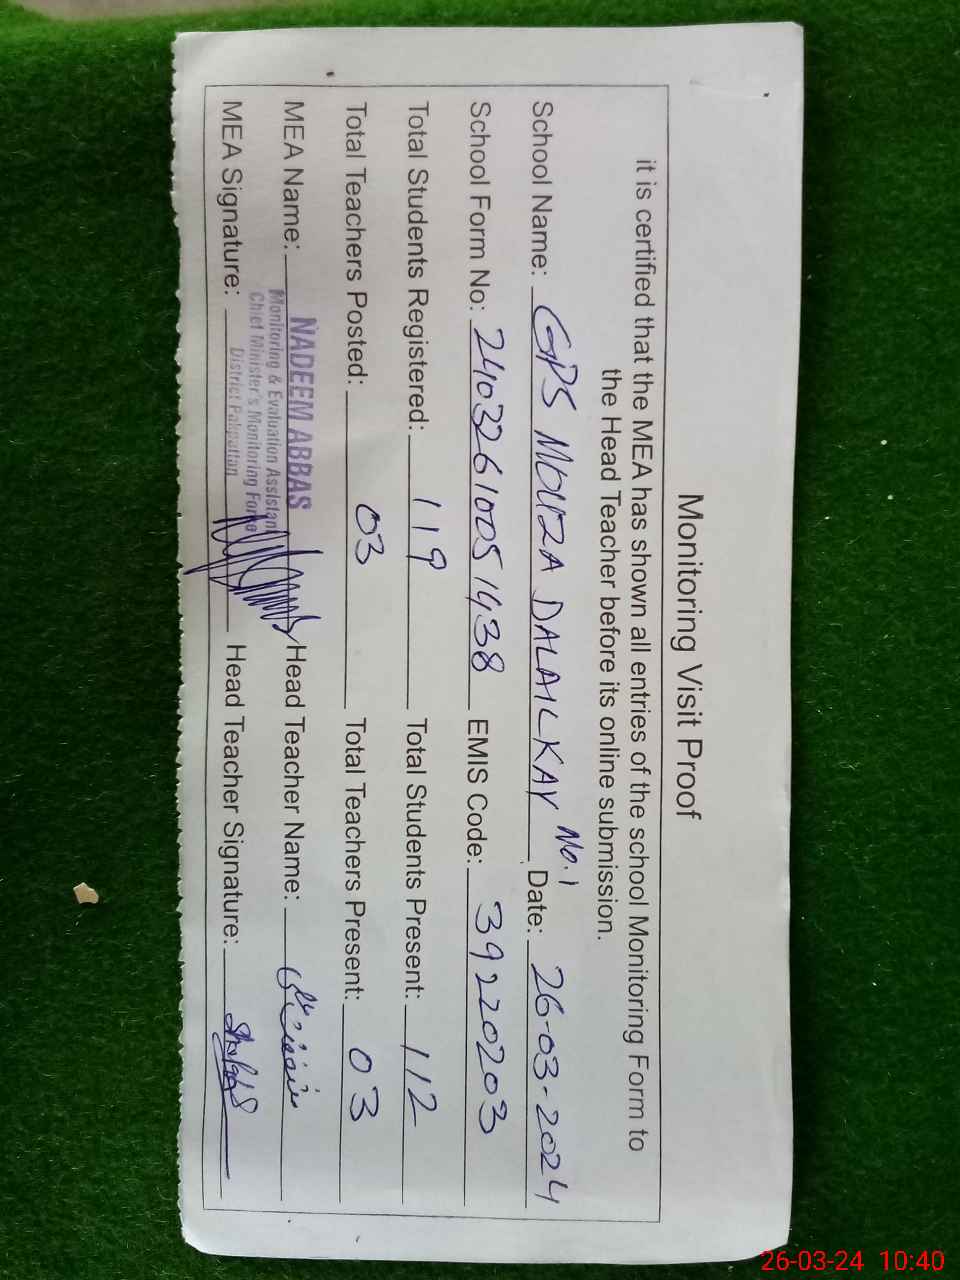 Monitoring Visit Proof
it is certified that the MEA has shown all entries of the school Monitoring Form to
the Head Teacher before its online submission.
School Name: GPS MOUZA DALAILKAY No.1 Date: 26-03-2024
School Form No: 24032610051438 EMIS Code: 39220203
Total Students Registered: 119 Total Students Present: 112
Total Teachers Posted: 03 Total Teachers Present: 03
MEA Name: NADEEM ABBAS Head Teacher Name:
Monitoring & Evaluation Assistant
Chief Minister's Monitoring Force
District Pakpattan
MEA Signature: Head Teacher Signature:
26-03-24 10:40